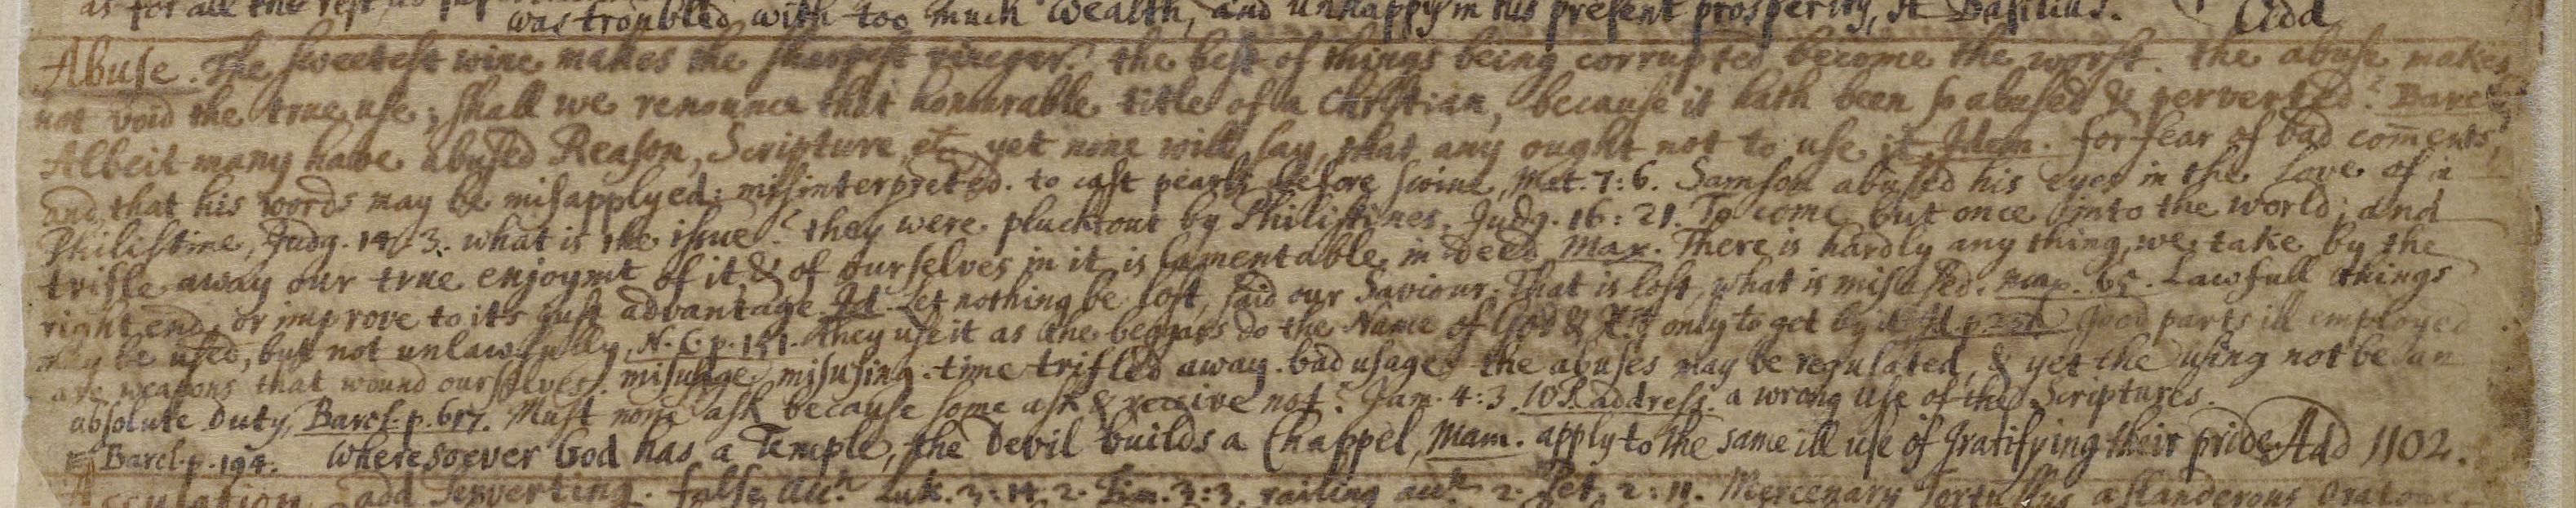 as for all the rest
was troubled with too much wealth, and unhappy in his present prosperity, st Basilius. Add
Abuse. The sweetest wine makes the sharpest vinegar. the best of things being corrupted become the worst. the abuse makes
not void the true use; shall we renounce that honourable title of a Christian, because it hath been so abused & perverted? Barc
Albeit many have abused Reason, Scripture, etc yet none will say, that any ought not to use it, Idem. for fear of bad coments,
and that his words may be misapplyed: misinterpreted. to cast pearls before swine, Mat. 7:6. Samson abused his eyes in the Love of a
Philistine, Judg. 14:3. what is the issue? they were pluckt out by Philistines, Judg. 16:21. To come but once into the world; and
trifle away our true enjoymt of it, & of ourselves in it is lamentable in deed, Mar. There is hardly any thing, we take by the
right end, or improve to its just advantage. Id. Let nothing be lost, said our Saviour. That is lost, what is misused. Map. 65. Lawfull things
may be used, but not unlawfully, N.C. p. 151. they use it as the beggars do the Name of God & only to get by it Good parts ill employed
are weapons that wound ourselves. misusage, misusing. time trifled away. bad usage. the abuses may be regulated, & yet the using not be an
absolute Duty, Barcl. p. 617. Must none ask because some ask & receive not? Jam. 4:3. address. a wrong use of the Scriptures.
Barcl. p. 194. Wheresoever God has a Temple, the Devil builds a Chappel, Mam. apply to the same ill use of gratifying their pride Add 1102.
add Perverting. false Luk. 3:14. 2. Tim. 3:3. railing 2. Pet. 2:11. Mercenary Tertullus a slanderous Oratour,